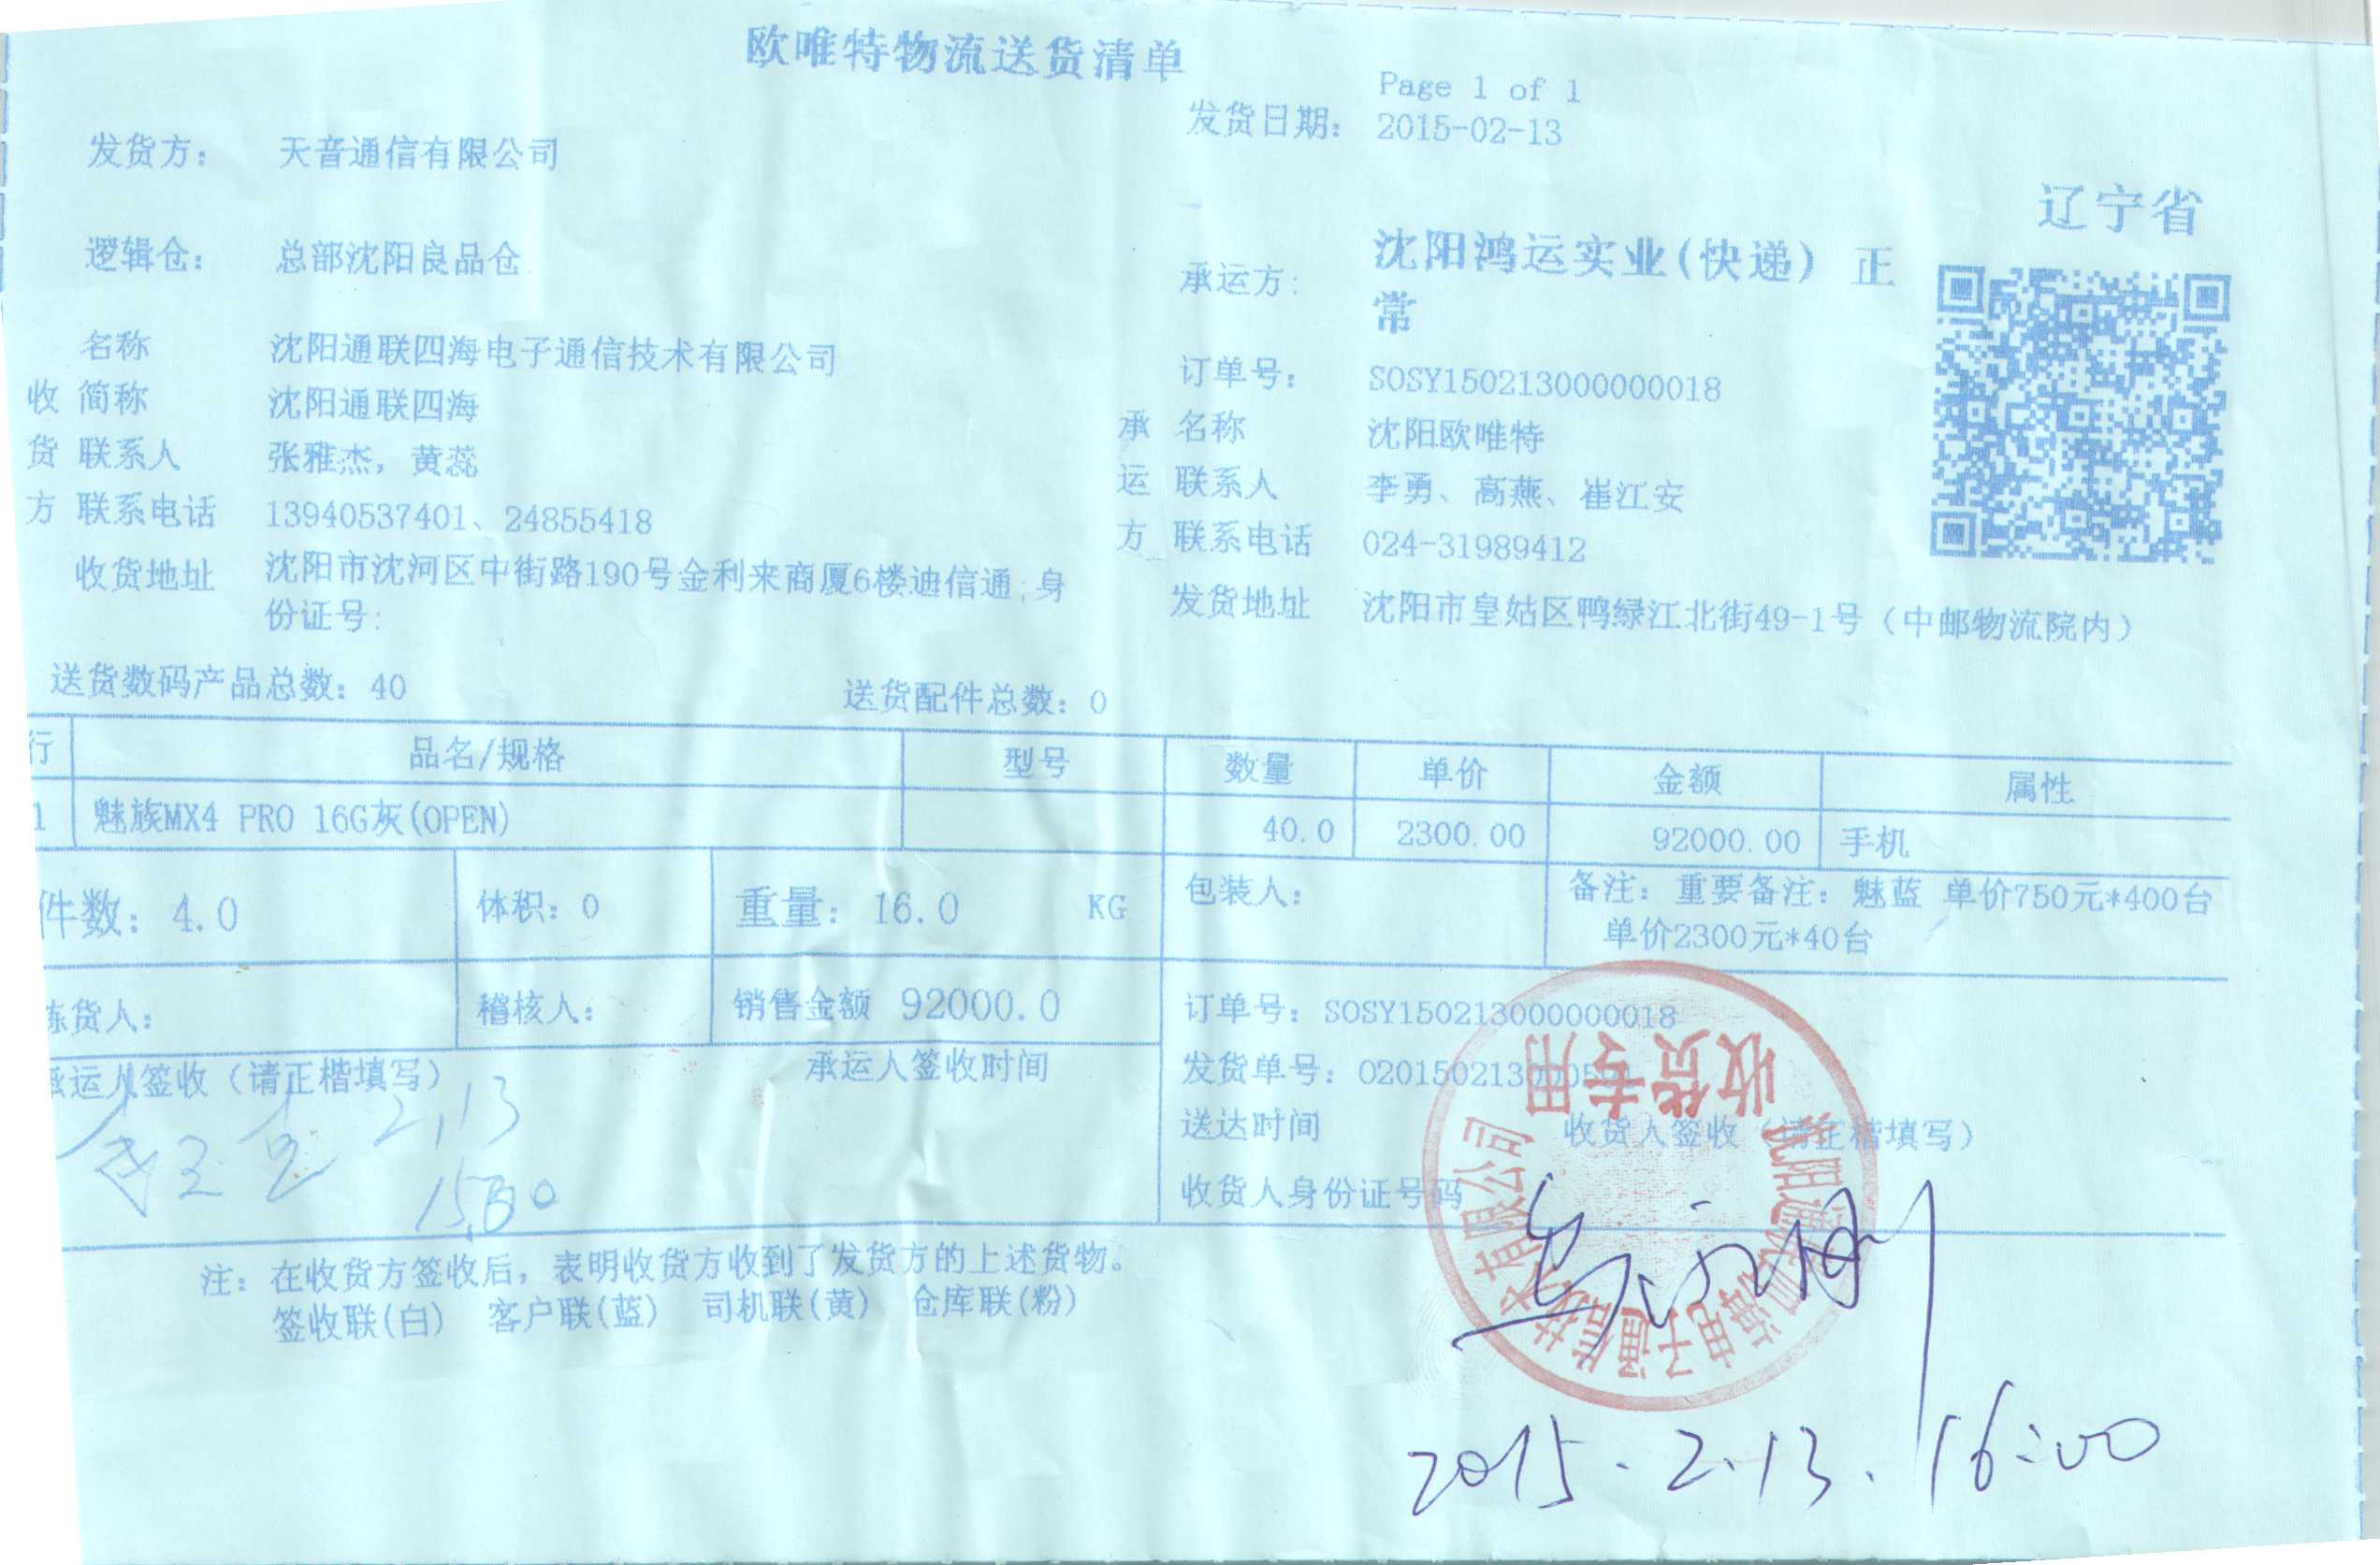 欧唯特物流送货清单
Page 1 of 1
发货日期: 2015-02-13
发货方: 天音通信有限公司
辽宁省
逻辑仓: 总部沈阳良品仓
承运方: 沈阳鸿运实业(快递) 正
常
名称 沈阳通联四海电子通信技术有限公司
订单号: SOSY150213000000018
收 简称 沈阳通联四海
承 名称 沈阳欧唯特
货 联系人 张雅杰, 黄蕊
运 联系人 李勇、高燕、崔江安
方 联系电话 13940537401、24855418
方 联系电话 024-31989412
收货地址 沈阳市沈河区中街路190号金利来商厦6楼迪信通;身
份证号:
发货地址 沈阳市皇姑区鸭绿江北街49-1号（中邮物流院内）
送货数码产品总数: 40 送货配件总数: 0
行 品名/规格 型号 数量 单价 金额 属性
1 魅族MX4 PRO 16G灰(OPEN) 40.0 2300.00 92000.00 手机
件数: 4.0 体积: 0 重量: 16.0 KG 包装人:
备注: 重要备注: 魅蓝 单价750元*400台
单价2300元*40台
拣货人: 稽核人: 销售金额 92000.0
订单号: SOSY150213000000018
承运人签收（请正楷填写） 承运人签收时间
发货单号:
2.13
送达时间 收货人签收（请正楷填写）
收货人身份证号码
收货专用
沈阳通联四海电子通信技术有限公司
注: 在收货方签收后, 表明收货方收到了发货方的上述货物。
签收联(白) 客户联(蓝) 司机联(黄) 仓库联(粉)
2015.2.13. 16:00